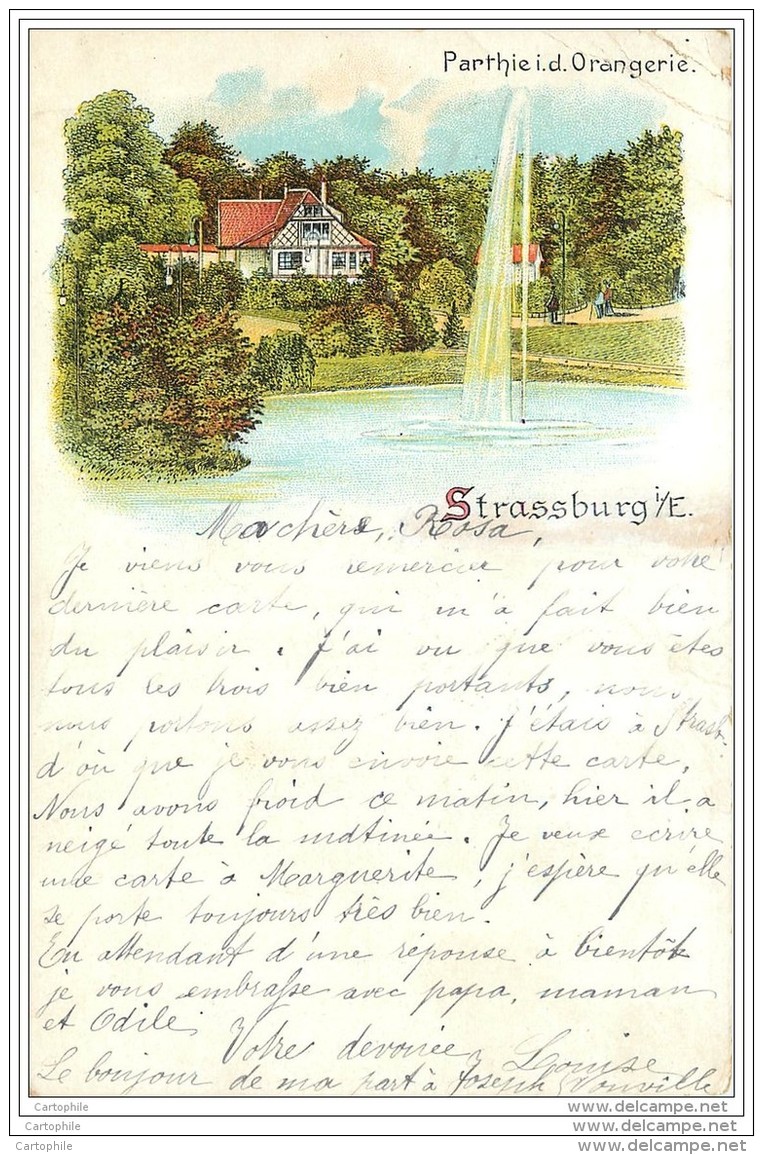 Parthie i.d. Orangerie.
Strassburg i/E.
Ma chère Rosa,
Je viens vous remercier pour votre
dernière carte, qui m'a fait bien
du plaisir. J'ai vu que vous êtes
tous les trois bien portants, nous
nous portons assez bien. J'étais à Strasb.
d'où que je vous envoie cette carte.
Nous avons froid ce matin, hier il a
neigé toute la matinée. Je veux ecrire
une carte à Marguerite, j'espère qu'elle
se porte toujours très bien.
En attendant d'une réponse à bientôt
je vous embrasse avec papa, maman
et Odile,
Votre devouée, Louise
Le bonjour de ma part à Joseph
Cartophile
www.delcampe.net
Cartophile
www.delcampe.net
Cartophile
www.delcampe.net